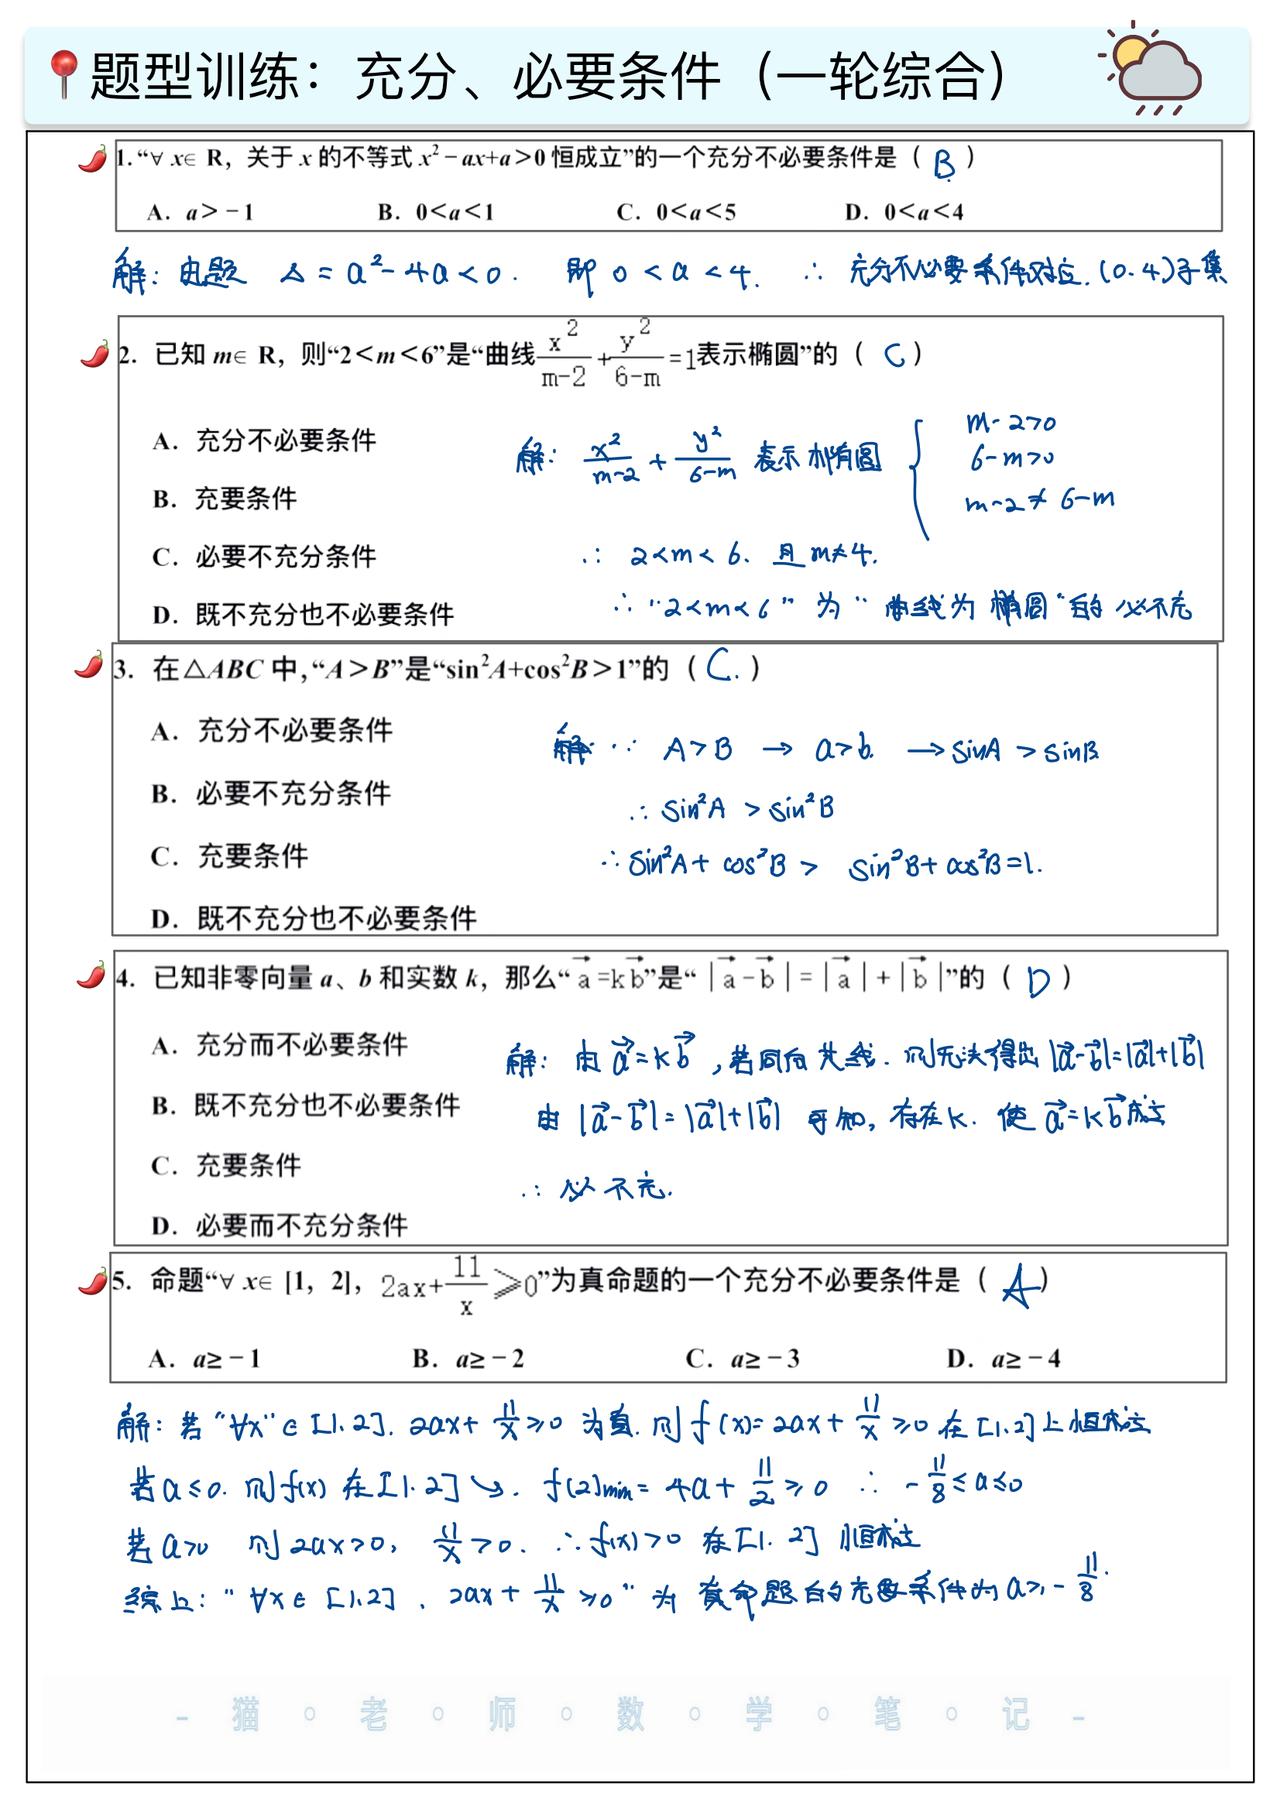 题型训练：充分、必要条件（一轮综合）
1.“∀ x∈ R，关于 x 的不等式 x²－ax+a＞0 恒成立”的一个充分不必要条件是（ B ）
A．a＞－1 B．0＜a＜1 C．0＜a＜5 D．0＜a＜4
解：由题 Δ＝a²－4a＜0. 即 0＜a＜4. ∴ 充分不必要条件对应.(0.4)子集
2．已知 m∈ R，则“2＜m＜6”是“曲线 x²/(m-2)+y²/(6-m)=1表示椭圆”的（ C ）
A．充分不必要条件
B．充要条件
C．必要不充分条件
D．既不充分也不必要条件
解：x²/(m-2) + y²/(6-m) 表示椭圆 { m-2>0
6-m>0
m-2≠6-m
∴ 2<m<6. 且 m≠4.
∴ “2<m<6” 为“曲线为 椭圆”的 必不充
3．在△ABC 中，“A＞B”是“sin²A+cos²B＞1”的（ C. ）
A．充分不必要条件
B．必要不充分条件
C．充要条件
D．既不充分也不必要条件
解：∵ A>B → a>b. → sinA > sinB
∴ sin²A > sin²B
∴ sin²A+ cos²B > sin²B+ cos²B=1.
4．已知非零向量 a、b 和实数 k，那么“a⃗=kb⃗”是“ |a⃗-b⃗|=|a⃗|+|b⃗|”的（ D ）
A．充分而不必要条件
B．既不充分也不必要条件
C．充要条件
D．必要而不充分条件
解：由 a⃗=kb⃗ ，若同向共线. 则无法得出 |a⃗-b⃗|=|a⃗|+|b⃗|
由 |a⃗-b⃗|=|a⃗|+|b⃗| 可知，存在k. 使 a⃗=kb⃗成立
∴ 必不充.
5．命题“∀ x∈ [1，2]，2ax+11/x⩾0”为真命题的一个充分不必要条件是（ A ）
A．a≥－1 B．a≥－2 C．a≥－3 D．a≥－4
解：若“∀x”∈[1.2]. 2ax+ 11/x ≥0 为真. 则 f(x)= 2ax+ 11/x ≥0 在[1.2]上恒成立
若 a≤0. 则 f(x) 在[1.2]↘. f(2)min= 4a+ 11/2 ≥0 ∴ -11/8≤a≤0
若 a>0 则 2ax>0， 11/x >0. ∴ f(x)>0 在[1.2] 恒成立
综上：“∀x∈[1.2] . 2ax+ 11/x ≥0”为 真命题的充要条件为 a≥-11/8.
- 猫 ◦ 老 ◦ 师 ◦ 数 ◦ 学 ◦ 笔 ◦ 记 -